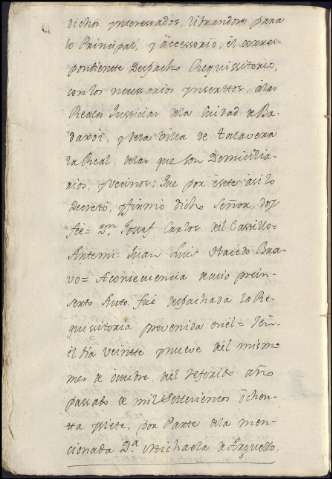 dichos ynteresados, librandose para
lo Principal, y accessorio, el corres-
pondiente Despacho Requisitorio,
con los nesessarios ynsertos, a las
Reales Justicias de la Ciudad de Ba-
daxos, y de la Villa de Talavera
la Real de las que son Domicilia-
rios, y vecinos: Que por este asi lo
Decretó, y firmó dicho Señor, doy
fé = Dn. Josef Carlos del Castillo =
Antemi Juan Luis Bra-
vo = A consecuencia de cuio prein-
serto Auto, fué despachada la Re-
quisitoria prevenida en él = Yen
el dia veinte y nueve del mismo
mes de octubre del referido año
passado de mil setecientos ochen-
ta y siete, por Parte de la men-
cionada Da. Michaela de Arguello,